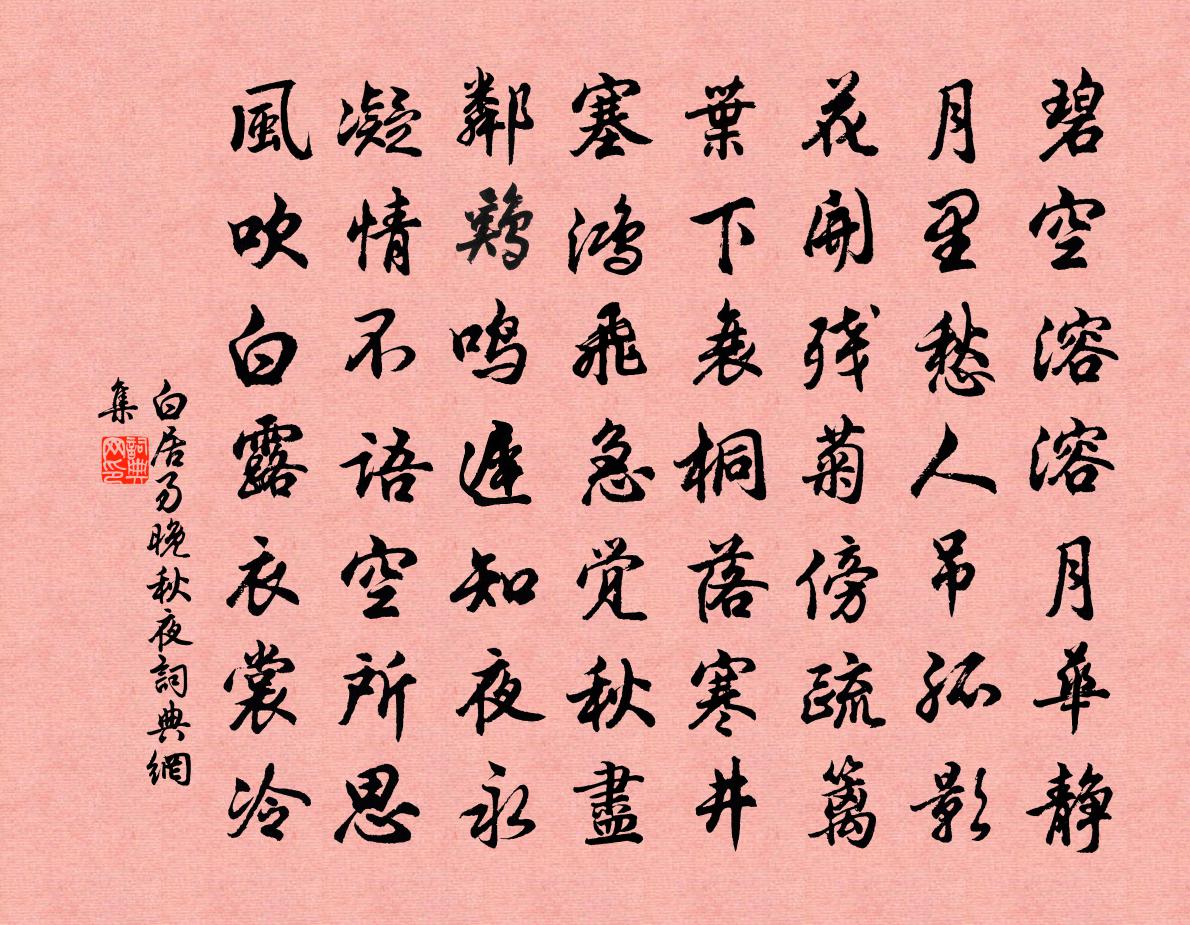 碧空溶溶月華静
月里愁人吊孤影
花開残菊傍疏篱
葉下衰桐落寒井
塞鴻飛急觉秋盡
鄰鷄鸣遲知夜永
凝情不语空所思
風吹白露衣裳冷
白居易晚秋夜詞典網
集
詞典
网印